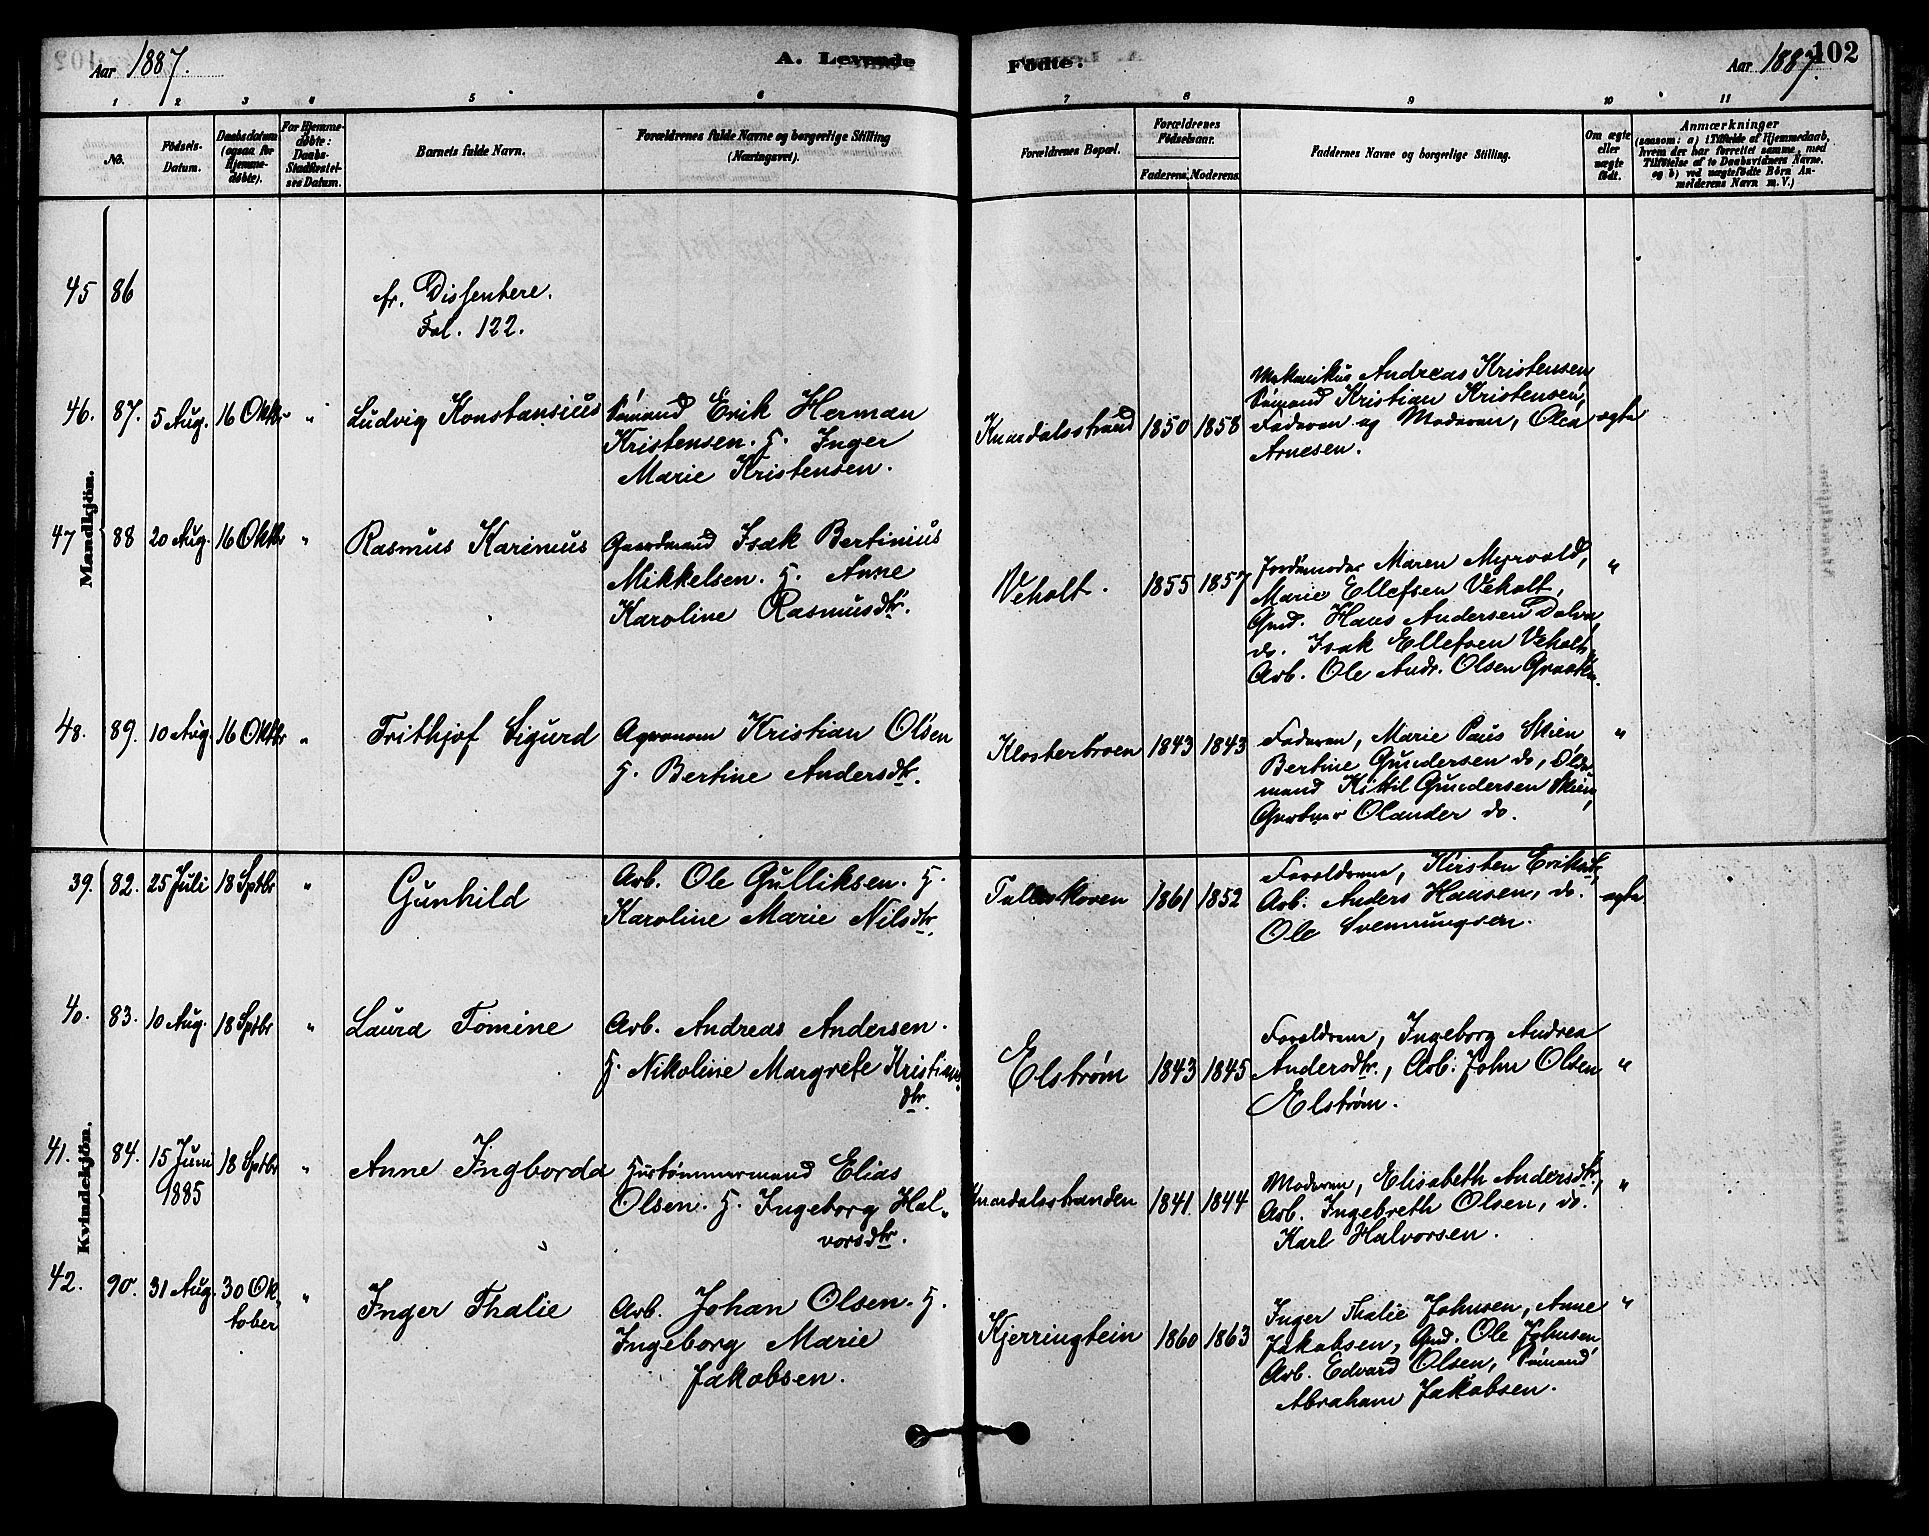 Aar 1887.
A. Levende
Fødte.
Aar 1887.
102
1 2 3 4 5 6 7 8 9 10 11
No.
Fødsels-
Datum.
Daabsdatum
(ogsaa for
Hjemme-
døbte).
For Hjemme-
døbte:
Daabs-
Stadfæstel-
ses Datum.
Barnets fulde Navn.
Forældrenes fulde Navne og borgerlige Stilling
(Næringsvei).
Forældrenes Bopæl.
Forældrenes
Fødselsaar.
Faderens. Moderens.
Faddernes Navne og borgerlige Stilling.
Om ægte
eller
uægte
født.
Anmærkninger
(saasom: a) i Tilfælde af Hjemmedaab,
hvem der har forrettet samme, med
Tilføielse af to Daabsvidners Navne.
og b) ved uægtefødte Børn An-
melderens Navn m. V.)
Mandkjön.
45 86
fr. Dissentere.
Fol. 122.
46. 87. 5 Aug. 16 Oktbr "
Ludvig Konstansius
Sømand Erik Herman
Kristensen. H. Inger
Marie Kristensen.
Knardalsstrand 1850 1858
Mekanikus Andreas Kristensen,
Sømand Kristian Kristensen,
Faderen og Moderen, Olea
Arnesen.
ægte
47 88 20 Aug. 16 Oktbr "
Rasmus Karinius
Gaardmand Isak Bertinius
Mikkelsen. H. Anne
Karoline Rasmusdtr.
Veholt. 1855 1857
Jordemoder Maren Myrvold,
Marie Ellefsen Veholt,
Gmd. Hans Andersen Dalva
do. Isak Ellefsen Veholt,
Arb. Ole Andr. Olsen
"
48. 89. 10 Aug. 16 Oktbr "
Frithjof Sigurd
Agronom Kristian Olsen
H. Bertine Andersdtr.
Klosterbroen 1843 1843
Faderen, Marie Paus Skien,
Bertine Gundersen do,
mand Kittil Gundersen Skien,
Gartner Olander do.
"
Kvindekjön.
39. 82. 25 Juli 18 Sptbr "
Gunhild
Arb. Ole Gulliksen. H.
Karoline Marie Nilsdtr.
Fulleskoven 1861 1852
Forældrene, Kirsten Eriksdtr,
Arb. Anders Hansen, do.
Ole Svennungsen.
ægte
40. 83. 10 Aug. 18 Sptbr "
Laura Tomine
Arb. Andreas Andersen.
H. Nikoline Margrete Kristians-
dtr.
Elstrøm 1843 1845
Forældrene, Ingeborg Andrea
Andersdtr., Arb. John Olsen
Elstrøm.
"
41. 84. 15 Juni
1885
18 Sptbr "
Anne Ingborda
Hustømmermand Elias
Olsen. H. Ingeborg Hal-
vorsdtr.
Knardalsstranden 1841. 1844
Moderen, Elisabeth Andersdtr.,
Arb. Ingebreth Olsen, do.
Karl Halvorsen.
"
42. 90. 31 Aug. 30 Ok-
tober
"
Inger Thalie
Arb. Johan Olsen. H.
Ingeborg Marie
Jakobsen.
Kjerringtein 1860 1863
Inger Thalie Johnsen, Anne
Jakobsen, Gmd. Ole Johnsen,
Arb. Edvard Olsen, Sømand
Abraham Jakobsen.
"